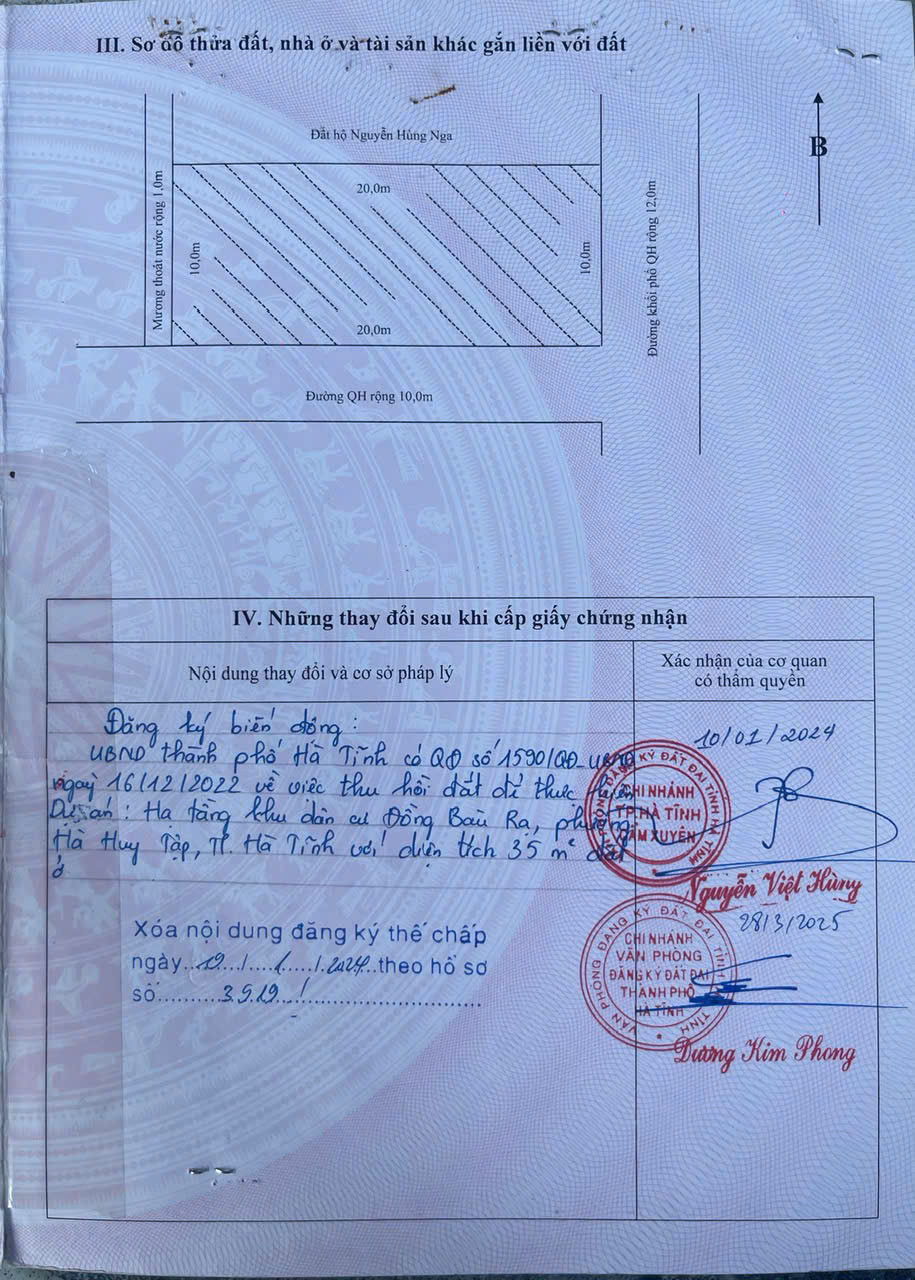 III. Sơ đồ thửa đất, nhà ở và tài sản khác gắn liền với đất
Đất hộ Nguyễn Hùng Nga
B
20,0m
Mương thoát nước rộng 1,0m
10,0m
10,0m
Đường khối phố QH rộng 12,0m
20,0m
Đường QH rộng 10,0m
IV. Những thay đổi sau khi cấp giấy chứng nhận
Nội dung thay đổi và cơ sở pháp lý
Xác nhận của cơ quan
có thẩm quyền
Đăng ký biến động:
UBND thành phố Hà Tĩnh có QĐ số 1590/QĐ-UBND
ngày 16/12/2022 về việc thu hồi đất để thực hiện
Dự án: Hạ tầng khu dân cư Đồng Bàu Rạ, phường
Hà Huy Tập, TP. Hà Tĩnh với diện tích 35 m² đất
ở
10/01/2024
VĂN PHÒNG ĐĂNG KÝ ĐẤT ĐAI TỈNH HÀ TĨNH
CHI NHÁNH
TP.HÀ TĨNH
CẨM XUYÊN
Nguyễn Việt Hùng
Xóa nội dung đăng ký thế chấp
ngày..19../..1../.2024..theo hồ sơ
số..........3919../..........................
28/3/2025
VĂN PHÒNG ĐĂNG KÝ ĐẤT ĐAI TỈNH HÀ TĨNH
CHI NHÁNH
VĂN PHÒNG
ĐĂNG KÝ ĐẤT ĐAI
THÀNH PHỐ
HÀ TĨNH
Dương Kim Phong